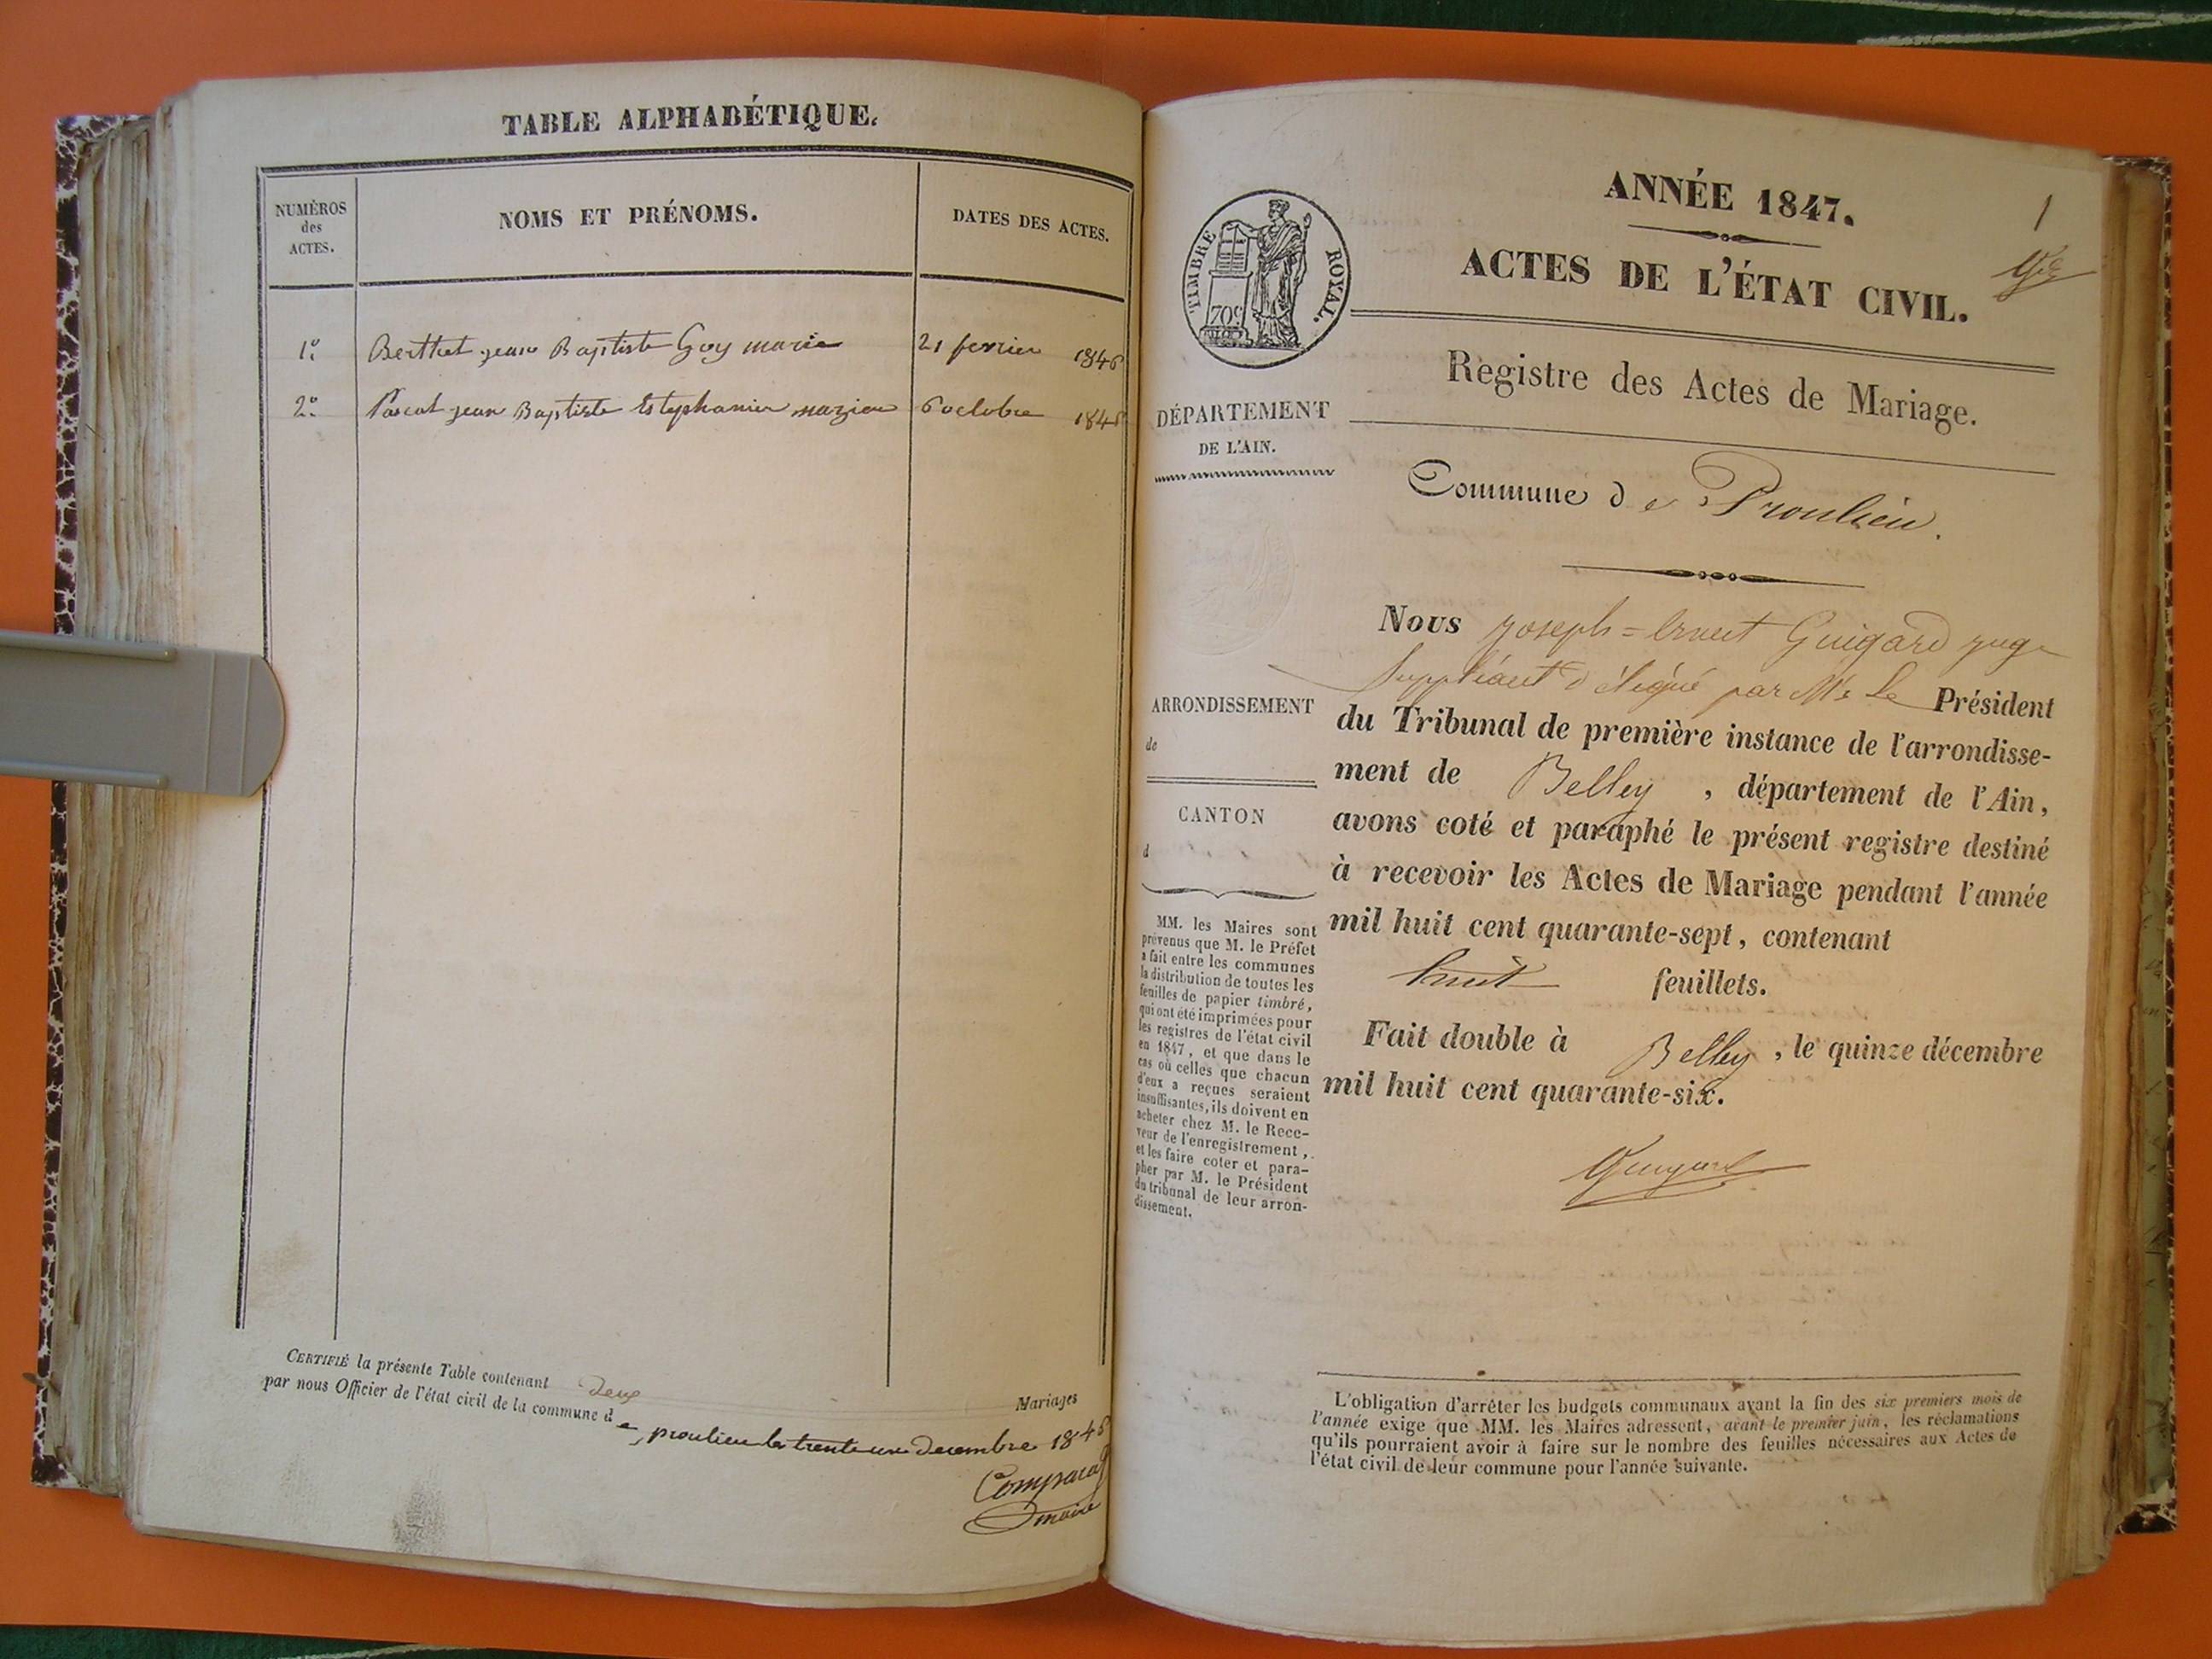 TABLE ALPHABÉTIQUE.
NUMÉROS
des
ACTES.
NOMS ET PRÉNOMS.
DATES DES ACTES.
1º Berthet jean Baptiste Goy marie 21 fevrier 1846
2º Pascal jean Baptiste Estephanie 6 octobre 1846
CERTIFIÉ la présente Table contenant deux Mariages
par nous Officier de l'état civil de la commune de
proulieu le trente un decembre 1846
maire
1
ANNÉE 1847.
ACTES DE L'ÉTAT CIVIL.
TIMBRE ROYAL.
70c
Registre des Actes de Mariage.
DÉPARTEMENT
DE L'AIN.
Commune de Proulieu.
Nous joseph=Ernest Guigard juge
Suppléant délégué par Mr Le Président
du Tribunal de première instance de l'arrondisse-
ment de Belley, département de l'Ain,
avons coté et paraphé le présent registre destiné
à recevoir les Actes de Mariage pendant l'année
mil huit cent quarante-sept, contenant
huit feuillets.
Fait double à Belley, le quinze décembre
mil huit cent quarante-six.
Guigard
ARRONDISSEMENT
de
CANTON
d
MM. les Maires sont
prévenus que M. le Préfet
a fait entre les communes
la distribution de toutes les
feuilles de papier timbré,
qui ont été imprimées pour
les registres de l'état civil
en 1847, et que dans le
cas où celles que chacun
d'eux a reçues seraient
insuffisantes, ils doivent en
acheter chez M. le Rece-
veur de l'enregistrement,
et les faire coter et para-
pher par M. le Président
du tribunal de leur arron-
dissement.
L'obligation d'arrêter les budgets communaux avant la fin des six premiers mois de
l'année exige que MM. les Maires adressent, avant le premier juin, les réclamations
qu'ils pourraient avoir à faire sur le nombre des feuilles nécessaires aux Actes de
l'état civil de leur commune pour l'année suivante.